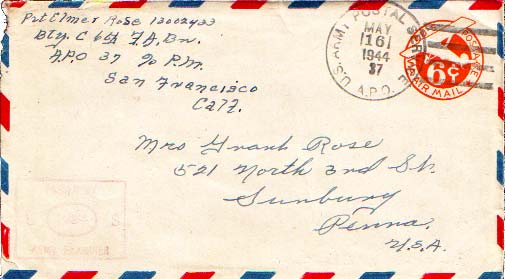 Pvt Elmer Rose 13002433
Bty. C 6th F.A. Bn.
A.P.O 37 % P.M.
San Francisco
Calf.
U.S. ARMY POSTAL
MAY
16
1944
37
A.P.O.
POSTAGE
6¢
VIA AIR MAIL
Mrs Grant Rose
521 North 3rd St.
Sunbury
Penna.
U.S.A.
ARMY EXAMINER